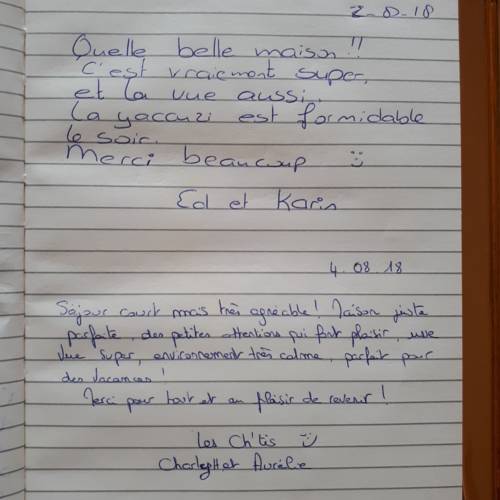 2-8-18
Quelle belle maison!!
C'est vraiment super,
et la vue aussi.
La yaccuzi est formidable
le soir.
Merci beaucoup ü
Ed et Karin
4.08.18
Séjour court mais très agréable! Maison juste
parfaite, des petites attentions qui font plaisir, une
vue super, environnement très calme, parfait pour
des vacances!
Merci pour tout et au plaisir de revenir!
Les Ch'tis
et Aurélie